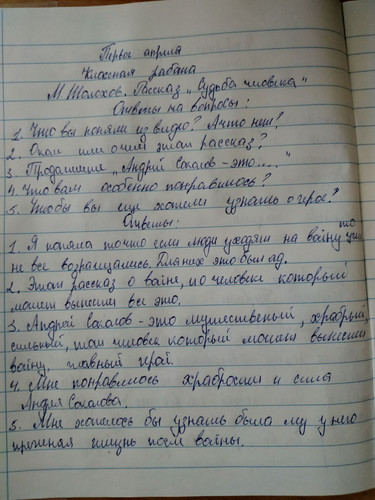 Первое апреля
Классная работа
М. Шолохов. Рассказ „Судьба человека"
Ответы на вопросы:
1. Что вы поняли из видео? А что нет?
2. О ком или о чем этот рассказ?
3. Продолжение „Андрей Соколов - это...."
4. Что вам особенно понравилось?
5. Чтобы вы еще хотели узнать о герое?
Ответы:
1. Я поняла то что если люди уходят на войну то
не все возращались. Для них это был ад.
2. Этот рассказ о войне, и о человеке который
может вынести все это.
3. Андрей Соколов - это мужественый, храбрый,
сильный, тот человек который может вынести
войну, главный герой.
4. Мне понравилось храбрость и сила
Андрея Соколова.
5. Мне хотелось бы узнать была му у него
прежная жизнь после войны.